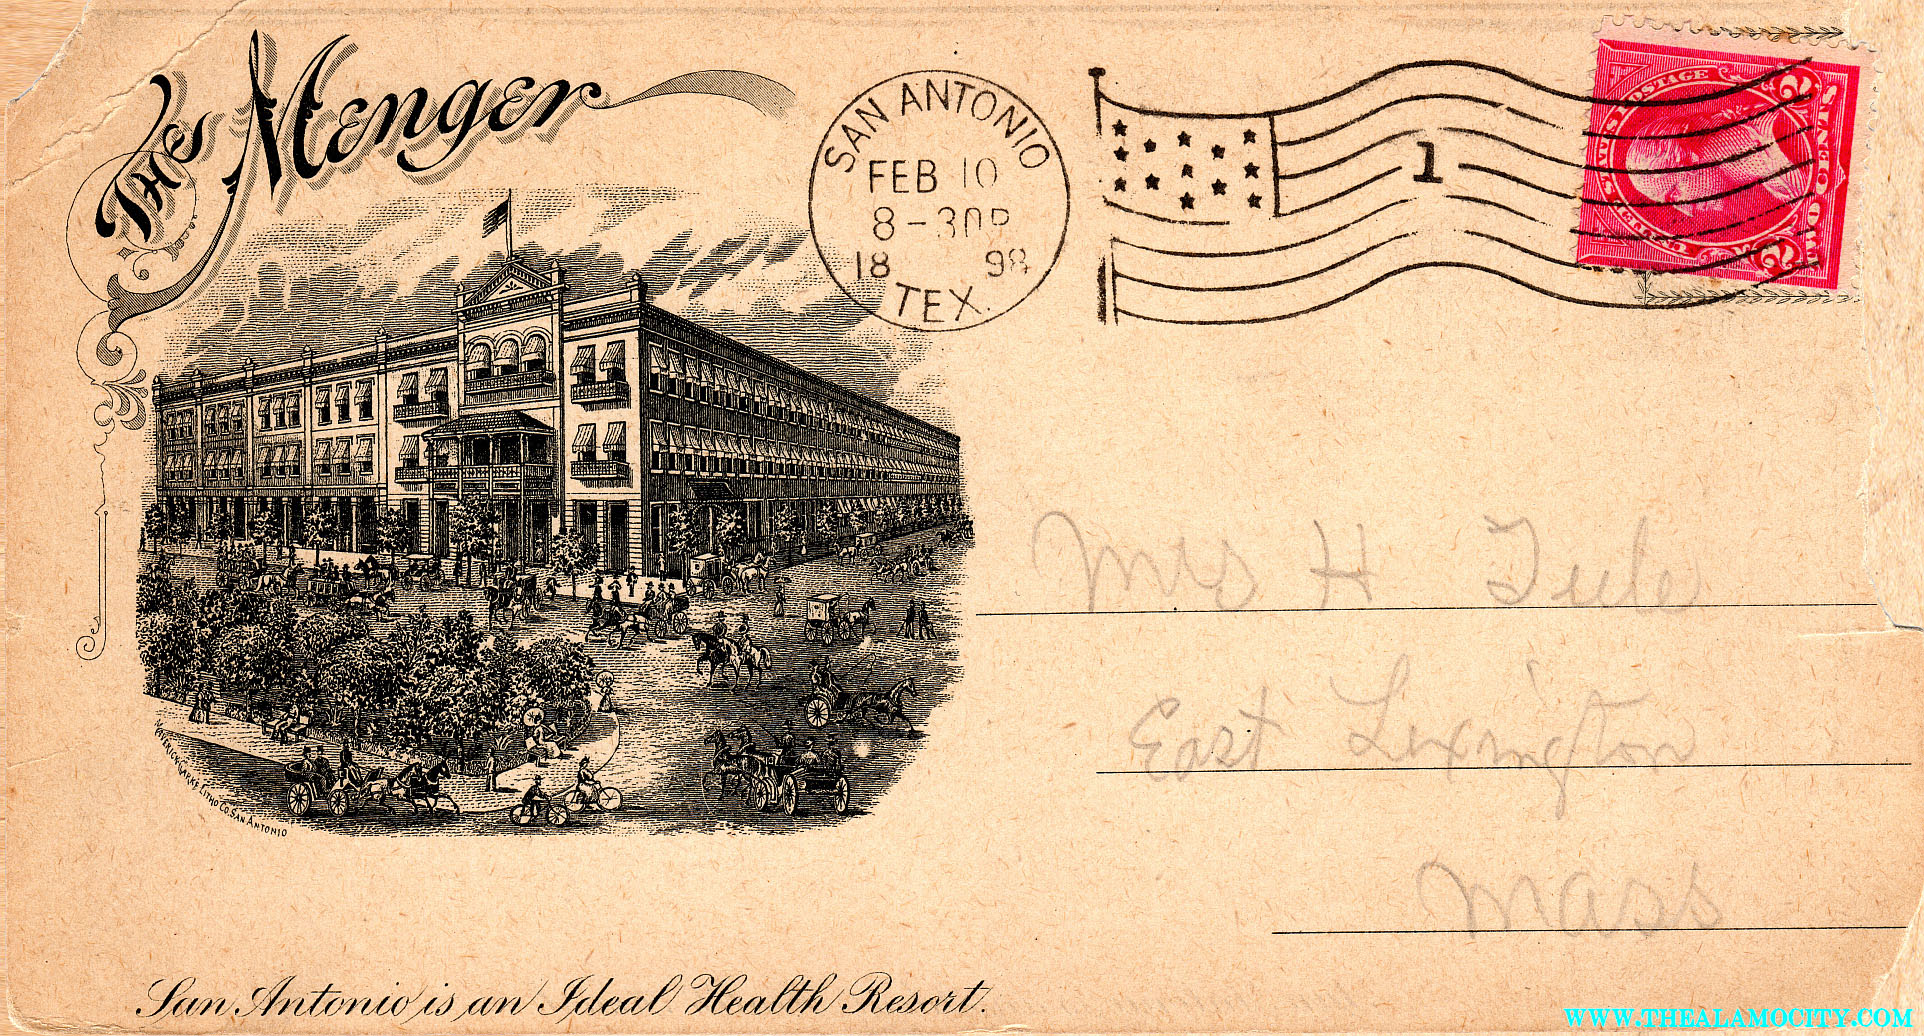 The Menger
SAN ANTONIO
FEB 10
8-30P
1898
TEX.
1
U.S. POSTAGE
TWO CENTS
2 2
Mrs H Tule
East Lexington
Mass
MAVERICK-CLARKE LITHO CO. SAN ANTONIO
San Antonio is an Ideal Health Resort.
WWW.THEALAMOCITY.COM